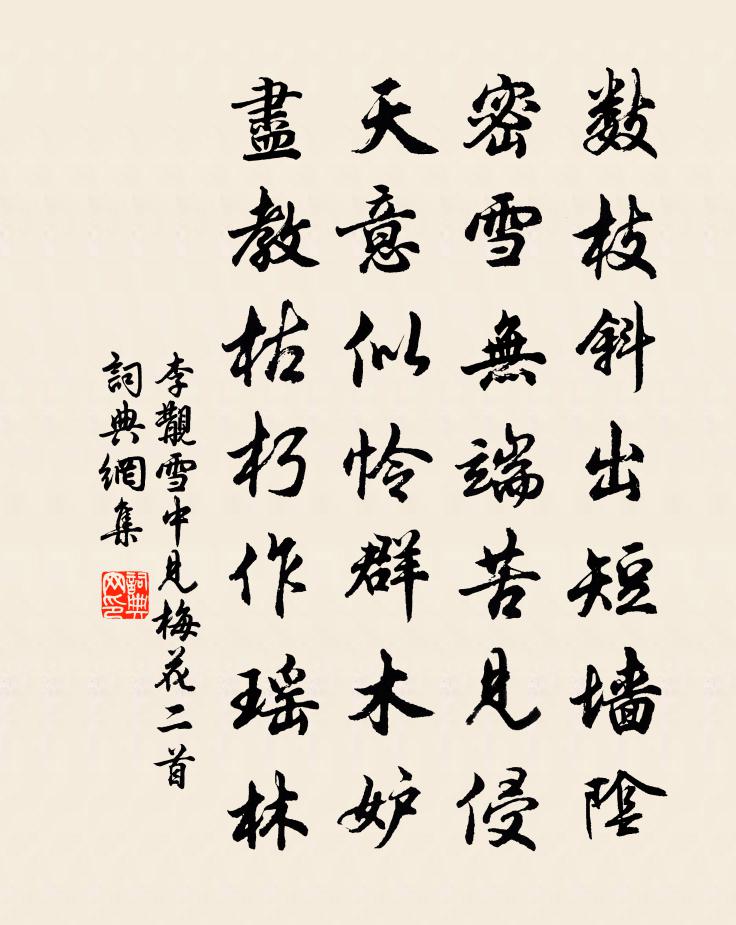 数枝斜出短墙陰
密雪無端苦見侵
天意似怜群木妒
盡教枯朽作瑶林
李觏雪中見梅花二首
詞典網集
詞典网印